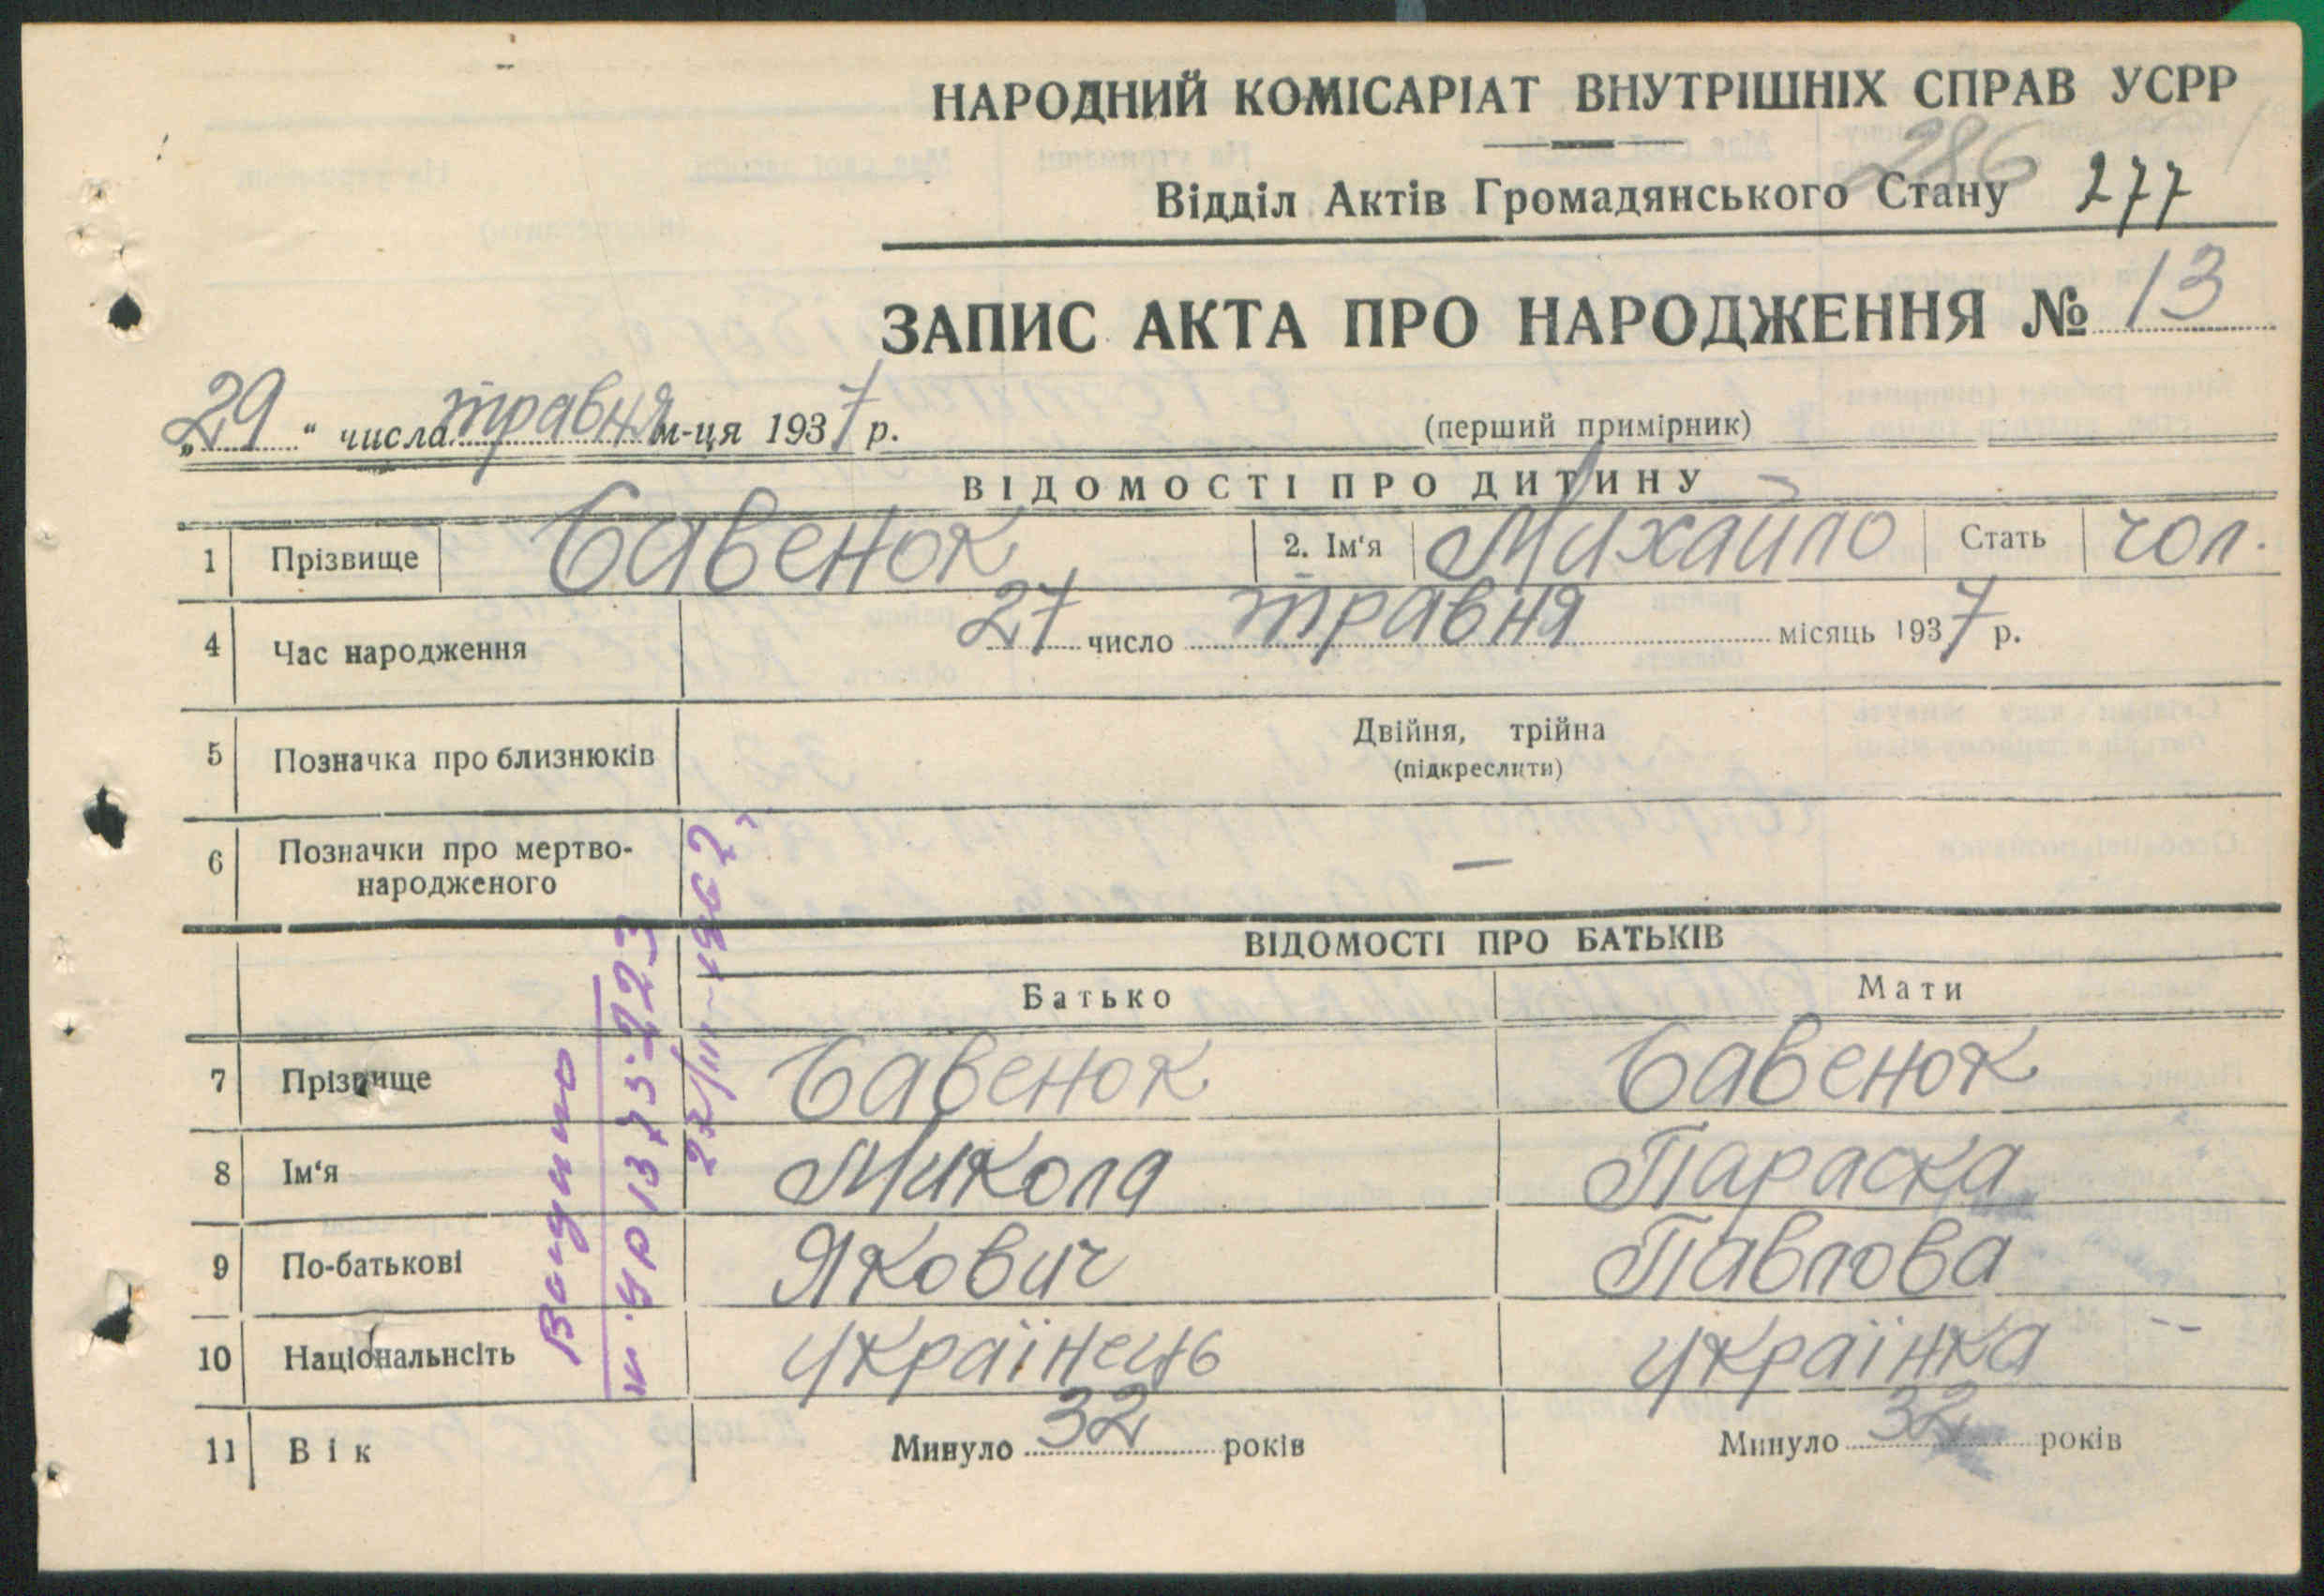 НАРОДНИЙ КОМІСАРІАТ ВНУТРІШНІХ СПРАВ УСРР
286
Відділ Актів Громадянського Стану 277
ЗАПИС АКТА ПРО НАРОДЖЕННЯ № 13
„29“ числа травня м-ця 1937 р. (перший примірник)
ВІДОМОСТІ ПРО ДИТИНУ
1 Прізвище Бавенок 2. Ім‘я Михайло Стать чол.
4 Час народження 27 число травня місяць 1937 р.
5 Позначка про близнюків Двійня, трійна
(підкреслити)
6 Позначки про мертво-
народженого —
ВІДОМОСТІ ПРО БАТЬКІВ
Батько Мати
7 Прізвище Бавенок Бавенок
8 Ім‘я Микола Параска
9 По-батькові Якович Павлова
10 Національнсіть Українець Українка
11 Вік Минуло 32 років Минуло 32 років